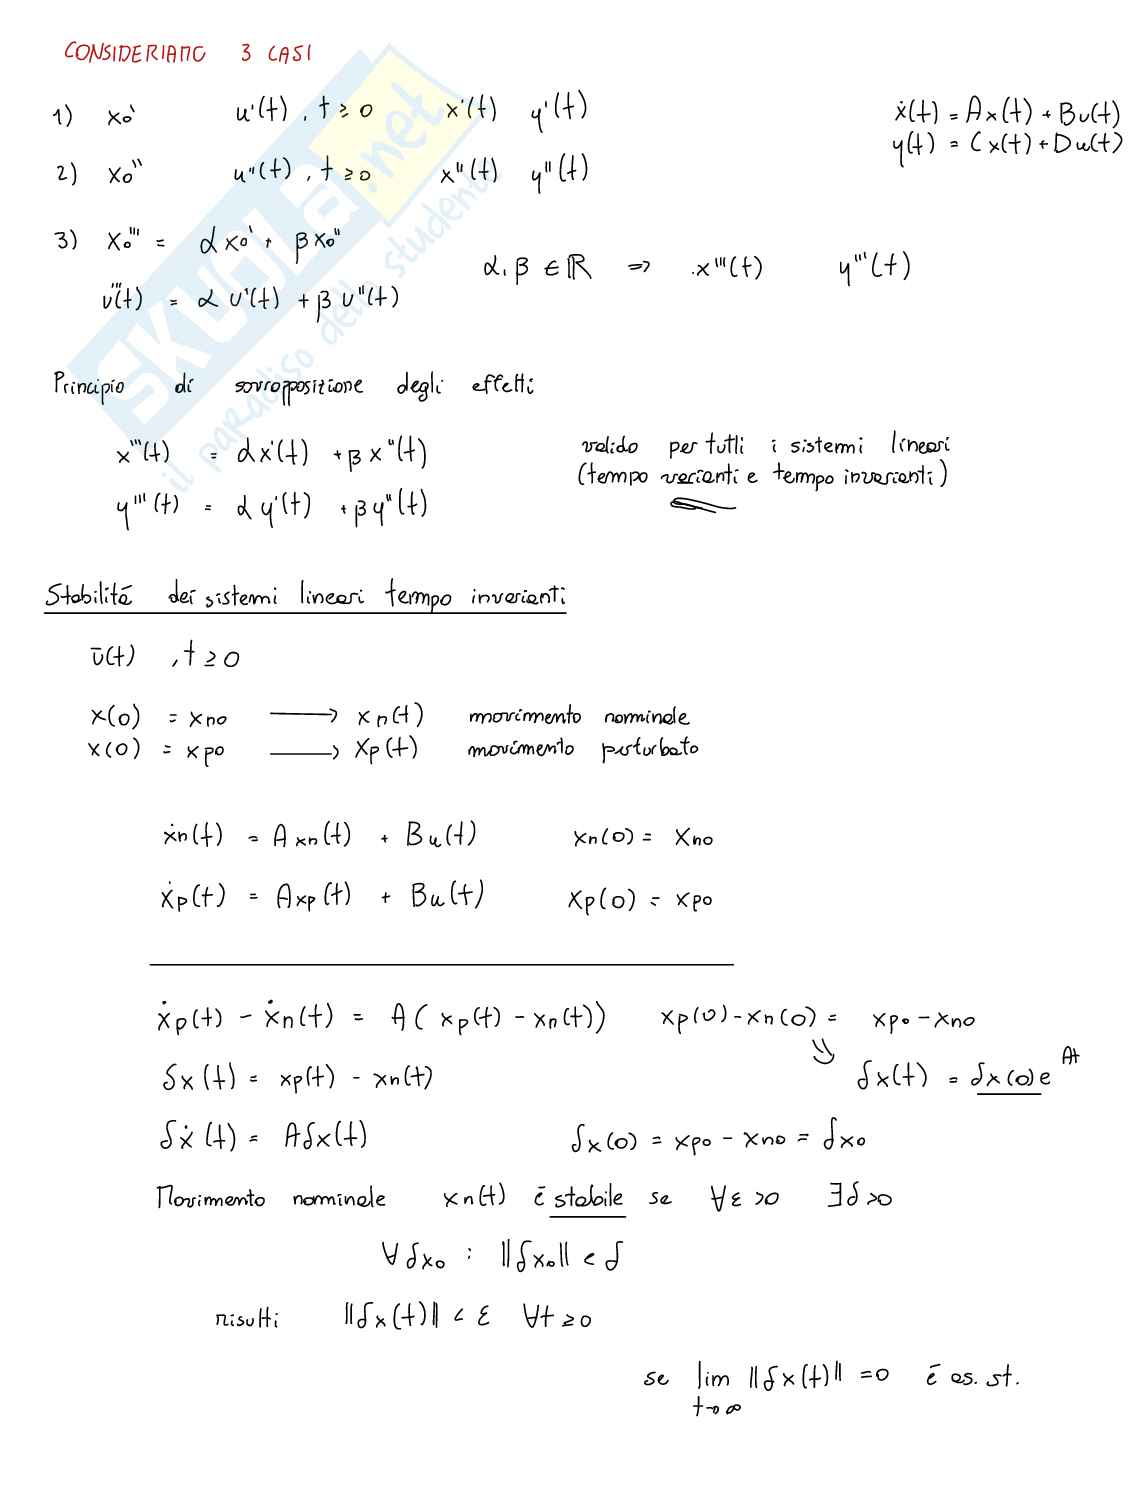 CONSIDERIAMO 3 CASI
1) x₀' u'(t), t ≥ 0 x'(t) y'(t)
ẋ(t) = Ax(t) + Bu(t)
y(t) = Cx(t) + Du(t)
2) x₀'' u''(t), t ≥ 0 x''(t) y''(t)
3) x₀''' = αx₀' + βx₀''
α, β ∈ ℝ ⇒ x'''(t) y'''(t)
u'''(t) = α u'(t) + β u''(t)
Principio di sovrapposizione degli effetti
x'''(t) = αx'(t) + βx''(t)
y'''(t) = αy'(t) + βy''(t)
valido per tutti i sistemi lineari
(tempo varianti e tempo invarianti)
Stabilità dei sistemi lineari tempo invarianti
ū(t) , t ≥ 0
x(0) = xn0 → xn(t) movimento nominale
x(0) = xp0 → xp(t) movimento perturbato
ẋn(t) = Axn(t) + Bu(t) xn(0) = xn0
ẋp(t) = Axp(t) + Bu(t) xp(0) = xp0
ẋp(t) - ẋn(t) = A(xp(t) - xn(t)) xp(0) - xn(0) = xp0 - xn0
δx(t) = xp(t) - xn(t) ⇓ δx(t) = δx(0)e^At
δẋ(t) = Aδx(t) δx(0) = xp0 - xn0 = δx0
Movimento nominale xn(t) è stabile se ∀ε>0 ∃δ>0
∀δx0 : ||δx0|| < δ
risulti ||δx(t)|| < ε ∀t ≥ 0
se lim ||δx(t)|| = 0 è as. st.
t→∞
SKUOLA.net
il paradiso dello studente